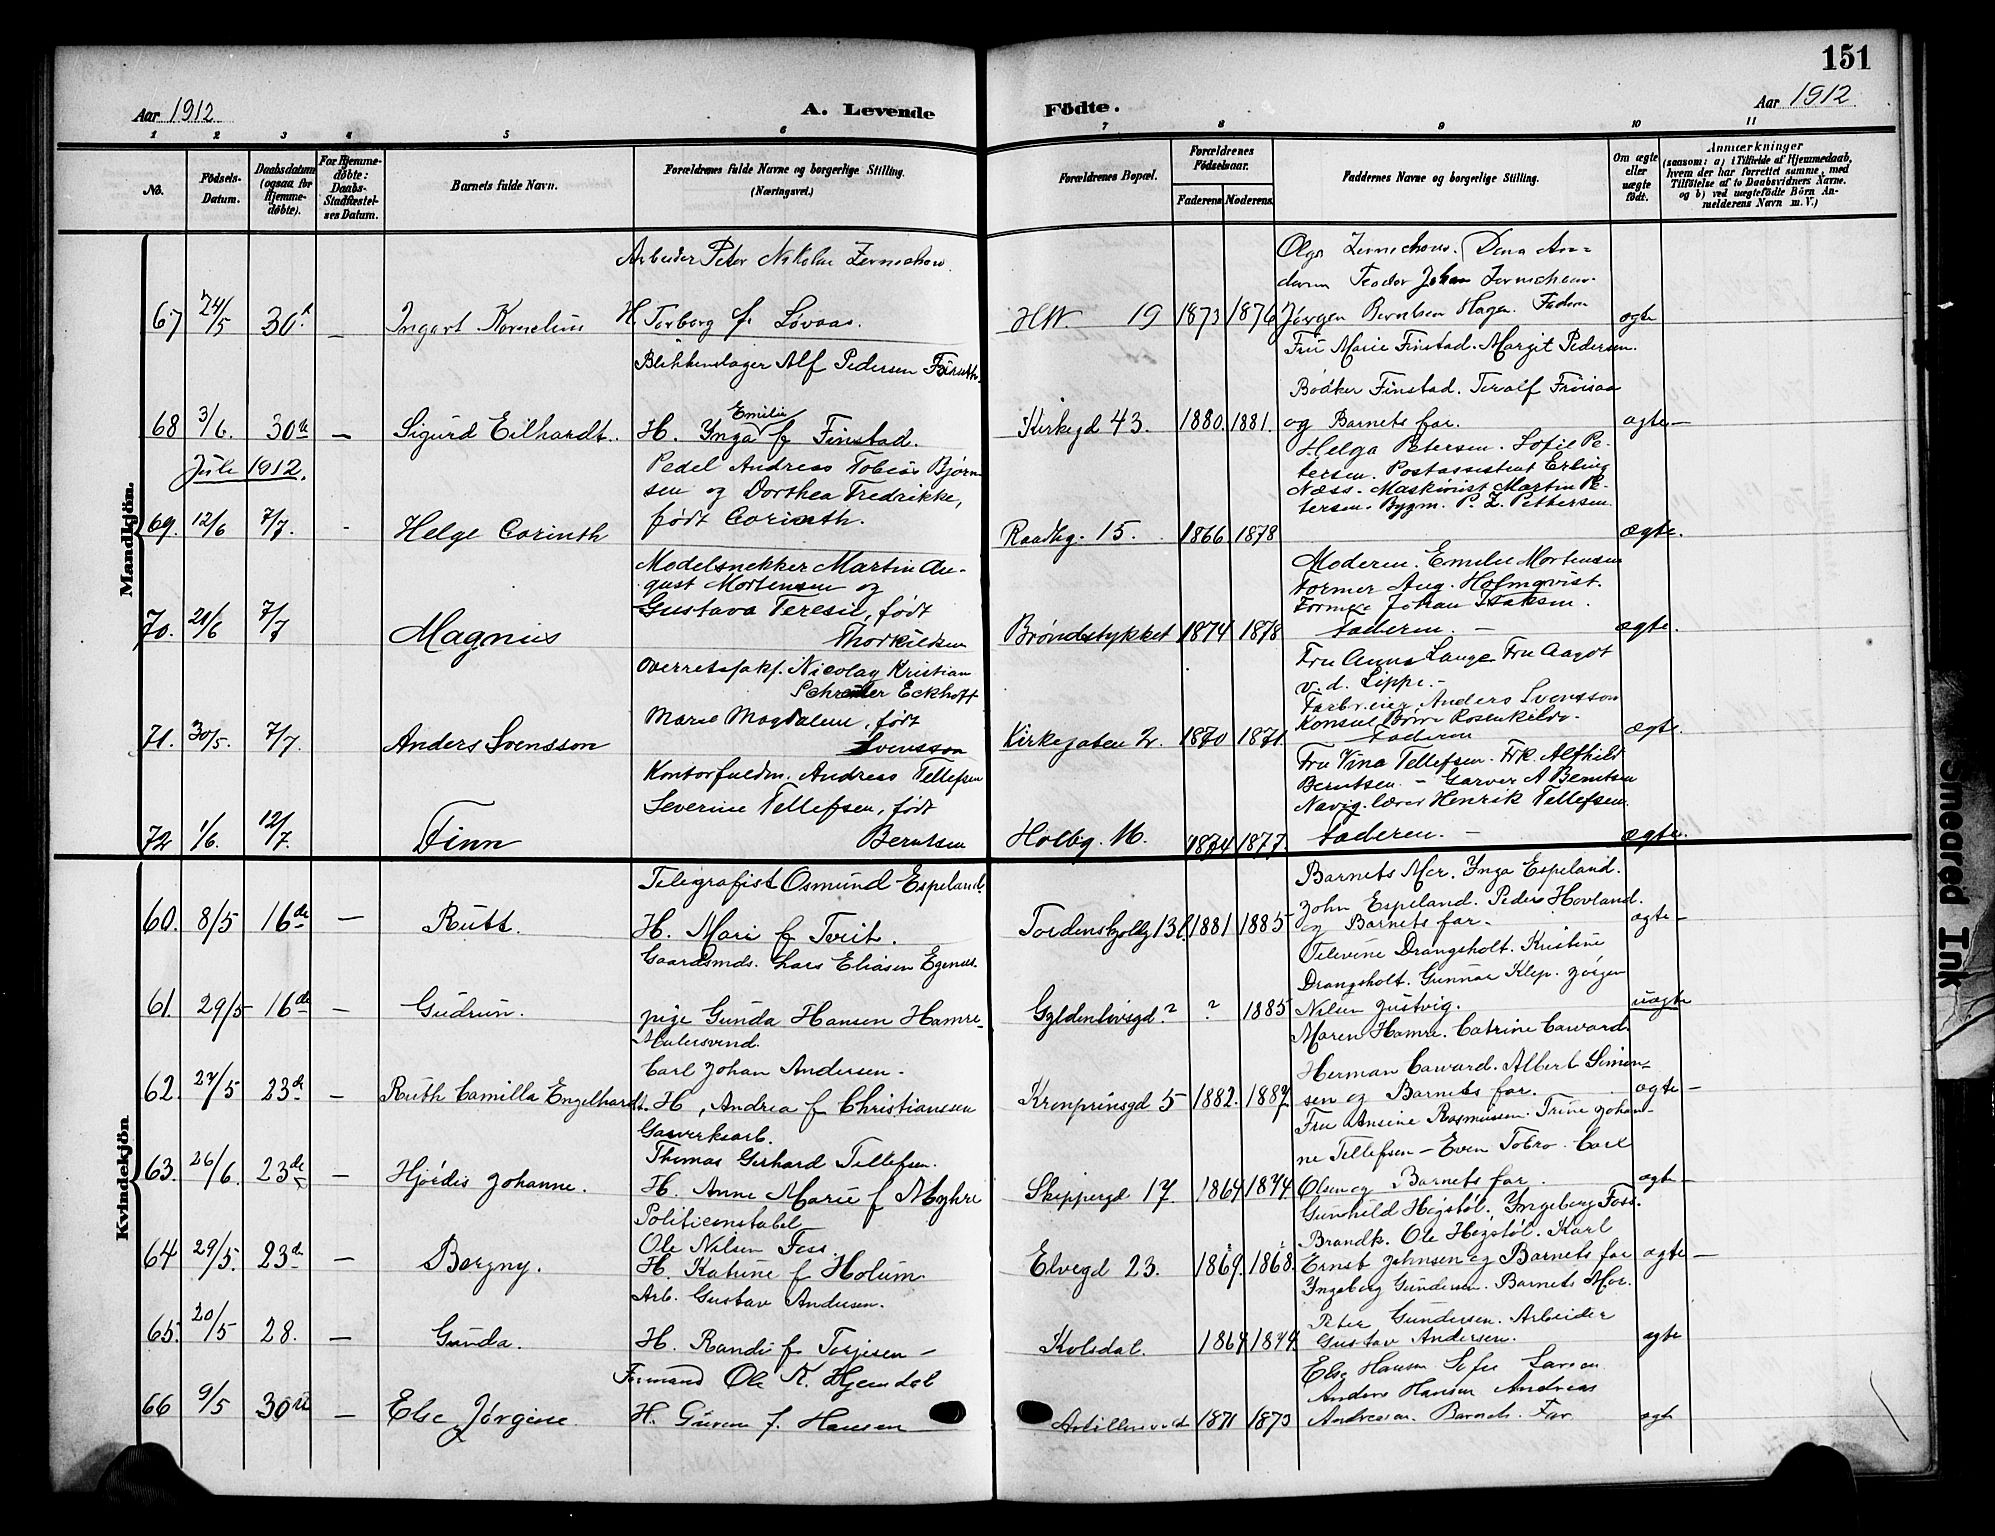 151
Aar 1912
A. Levende
Fødte.
Aar 1912
1 2 3 4 5 6 7 8 9 10 11
No.
Fødsels-
Datum.
Daabsdatum
(ogsaa for
Hjemme-
døbte).
For Hjemme-
døbte:
Daabs-
Stadfæstel-
ses Datum.
Barnets fulde Navn.
Forældrenes fulde Navne og borgerlige Stilling.
(Næringsvei.)
Forældrenes Bopæl.
Forældrenes
Fødselsaar.
Faderens Moderens.
Faddernes Navne og borgerlige Stilling.
Om ægte
eller
uægte
født.
Anmærkninger
(saasom: a) i Tilfælde af Hjemmedaab,
hvem der har forrettet samme, med
Tilføielse af to Daabsvidners Navne.
og b) ved uægtefødte Børn An-
melderens Navn m. V.)
Mandkjön.
Arbeider Peter Nikolai
67 24/5 30te — Ingart Kornelius H. Torborg f. Løvaas. 19 1873 1876 ægte
Olga Dina An-
dersen Teodor Johan
Jørgen Berntsen Hagen. Faderen
Blikkenslager Alf Pedersen
68 3/6. 30te — Sigurd Eilhardt. H. Ynga Emilie f Finstad. Kirkegd 43. 1880. 1881. ægte —
Fru Marie Finstad. Margit Pedersen.
Bødker Finstad. Toralf
og Barnets far.
Juli 1912.
Pedel Andreas Tobias Bjørn
sen og Dorthea Fredrikke,
født Corinth.
69. 12/6 7/7. Helge Corinth Raadhg. 15. 1866 1878 ægte.
Helga Petersen. Sofie Pe-
tersen. Postassistent Erling
Næss. Maskinist Martin Pe-
tersen. Bygm. P. Z. Pettersen
Modelsnekker Martin Au-
gust Mortensen og
Gustava Teresie, født
Thorkildsen
70. 21/6 7/7 Magnus Brøndstykket 1874 1878 ægte.
Moderen. Emilie Mortensen
Former Aug. Holmqvist.
Former Johan Isaksen.
Faderen. —
Overretssakf. Nicolay Kristian
Eckhoff
Marie Magdalene, født
Svensson
71. 30/5. 7/7. Anders Svensson Kirkegaten 2. 1870 1871. ægte.
Fru Anna Lange Fru Aagot
v. d. Lippe. —
Anders Svensson
Konsul Børre Rosenkilde.
Faderen
Kontorfuldm. Andreas Tellefsen
Severine Tellefsen, født
Berntsen
72 1/6. 12/7. Finn Holbg. 16. 1874 1877. ægte.
Fru Vina Tellefsen. Frk. Alfhild
Berntsen. — Garver A Berntsen
Navig. lærer Henrik Tellefsen.
Faderen. —
Kvindekjön
Telegrafist Osmund Espeland.
60. 8/5 16de — Rutt. H. Mari f Tveit. 1881 1885 ægte —
Barnets Mor. Ynga Espeland.
John Espeland. Peder Hovland.
og Barnets far.
Gaardsmds. Lars Eliasen
61. 29/5 16de — Gudrun. pige Gunda Hansen Hamre Gyldenløvsgd. ? ? 1885 uægte
Televine Drangsholt. Kristine
Drangsholt. Gunnar Klep. Jørgen
Nilsen Justvig.
Malersvend.
Carl Johan Andersen.
62. 27/5 23de — Ruth Camilla Engelhardt. H, Andrea f Christianssen Kronprinsgd 5 1882. 1882. ægte —
Maren Hamre. Catrine Caward.
Herman Caward. Albert Simon-
sen og Barnets far.
Gasverksarb.
Thomas Gerhard Tellefsen.
63. 26/6. 23de — Hjørdis Johanne. H. Anne Marie f Møghre Skippergd 17. 1864 1874 ægte —
Fru Ansine Rasmussen. Trine Johan-
ne Tellefsen — Even Tobro. Carl
Olsen og Barnets far.
Politikonstabel
Ole Nilsen Foss.
64 29/5. 23de — Borgny. H. Katrine f Holum. Elvegd 23. 1869. 1868. ægte —
Gunhild Hegstøl. Yngeborg Foss.
Brandk. Ole Hegstøl. Karl
Ernst Johnsen og Barnets far
Arb. Gustav Andersen.
65. 20/5 28. — Gunda. H. Randi f Torjesen — Kolsdal. 1864 1874. ægte
Yngeborg Gundersen. Barnets Mor.
Peter Gundersen. Arbeider
Gustav Andersen.
Formand Ole K. Hjemdal
66 9/5 30te — Else Jørgine. H. Guren f. Hansen 1871 1873 ægte
Else Hansen Sofie Larsen
Anders Hansen Andreas
Andresen. Barnets Far
Smeared Ink